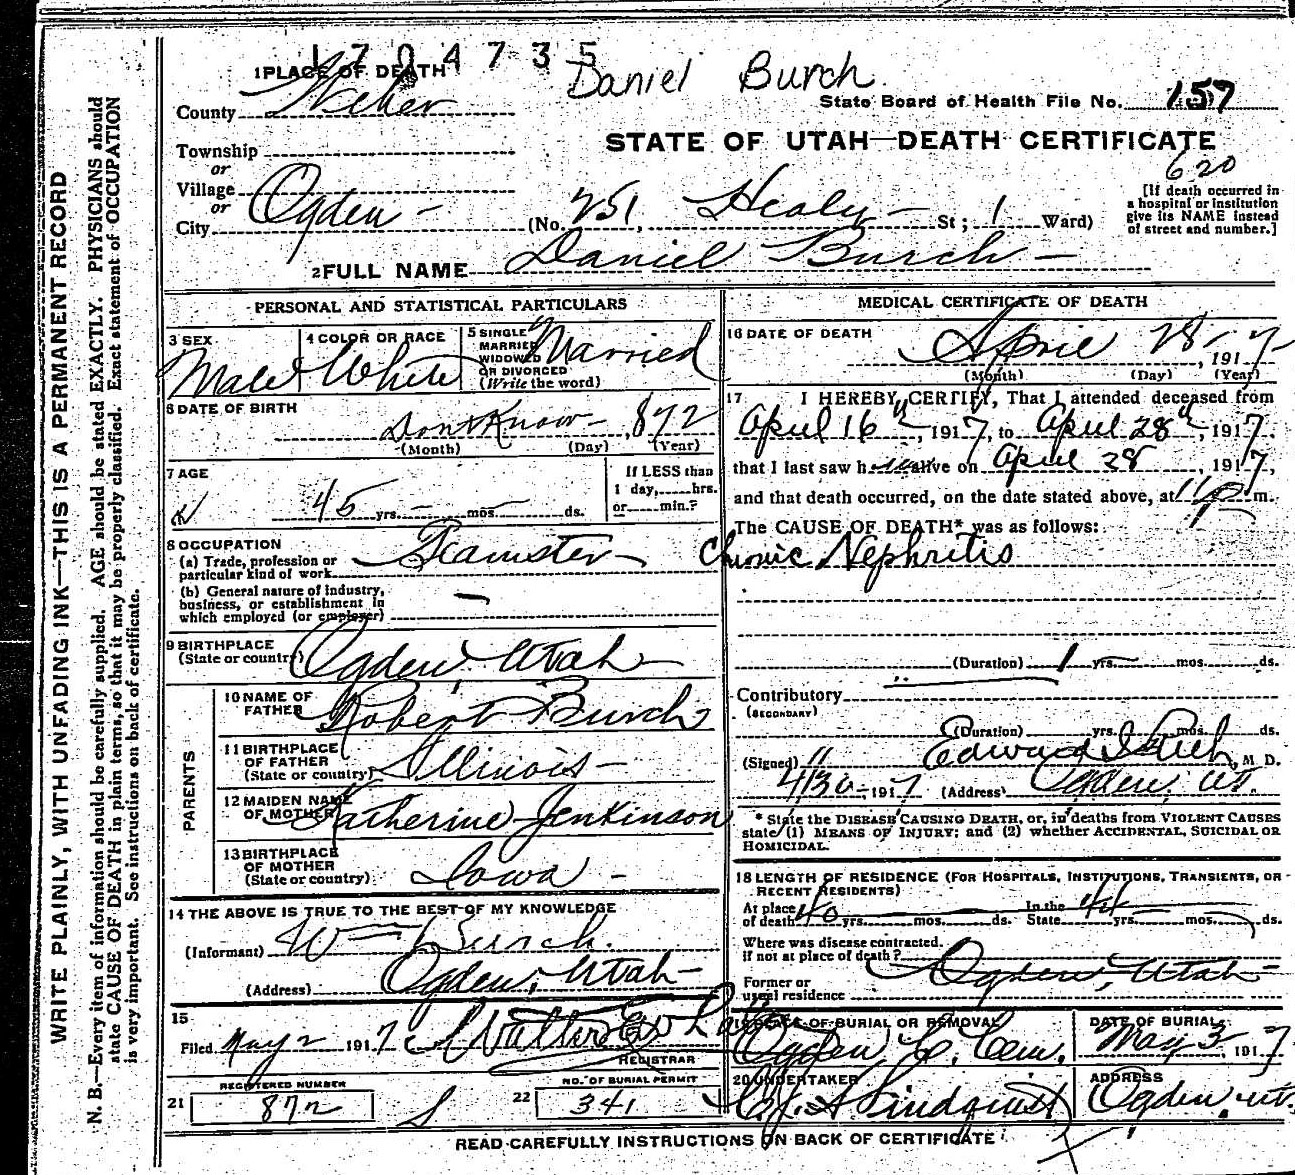 1704735
Daniel Burch
1 PLACE OF DEATH
County Weber
State Board of Health File No. 157
STATE OF UTAH—DEATH CERTIFICATE
620
Township
or
Village
or
City Ogden - (No. 251, Healy - St ; 1 Ward)
[If death occurred in
a hospital or institution
give its NAME instead
of street and number.]
2 FULL NAME Daniel Burch -
PERSONAL AND STATISTICAL PARTICULARS
3 SEX
Male
4 COLOR OR RACE
White
5 SINGLE
MARRIED
WIDOWED
OR DIVORCED
(Write the word)
Married
6 DATE OF BIRTH
Dont Know - , 1872
(Month) (Day) (Year)
7 AGE
45 yrs. - mos. - ds.
If LESS than
1 day,......hrs.
or......min.?
8 OCCUPATION
(a) Trade, profession or
particular kind of work Teamster -
(b) General nature of industry,
business, or establishment in
which employed (or employer) -
9 BIRTHPLACE
(State or country) Ogden, Utah
PARENTS
10 NAME OF
FATHER Robert Burch
11 BIRTHPLACE
OF FATHER
(State or country) Illinois -
12 MAIDEN NAME
OF MOTHER Katherine Jenkinson
13 BIRTHPLACE
OF MOTHER
(State or country) Iowa -
14 THE ABOVE IS TRUE TO THE BEST OF MY KNOWLEDGE
(Informant) Wm Burch.
(Address) Ogden, Utah
15
Filed May 2 1917 Walter
REGISTRAR
REGISTERED NUMBER
21 872
NO. OF BURIAL PERMIT
22 341
MEDICAL CERTIFICATE OF DEATH
16 DATE OF DEATH
April 28 - , 1917
(Month) (Day) (Year)
17 I HEREBY CERTIFY, That I attended deceased from
April 16th, 1917, to April 28th, 1917,
that I last saw him alive on April 28, 1917,
and that death occurred, on the date stated above, at 11 P m.
The CAUSE OF DEATH* was as follows:
Chronic Nephritis
(Duration) 1 yrs. mos. ds.
Contributory
(SECONDARY)
(Duration) yrs. mos. ds.
(Signed) Edward I , M D.
4/30 1917 (Address) Ogden, Ut.
* State the DISEASE CAUSING DEATH, or, in deaths from VIOLENT CAUSES
state (1) MEANS OF INJURY; and (2) whether ACCIDENTAL, SUICIDAL OR
HOMICIDAL.
18 LENGTH OF RESIDENCE (FOR HOSPITALS, INSTITUTIONS, TRANSIENTS, OR
RECENT RESIDENTS)
At place
of death 40 yrs. mos. ds. In the
State 44 yrs. mos. ds.
Where was disease contracted,
if not at place of death?
Former or
usual residence Ogden, Utah -
19 PLACE OF BURIAL OR REMOVAL
Ogden C. Cem.
DATE OF BURIAL
May 3, 1917
20 UNDERTAKER
Lindquist
ADDRESS
Ogden, Ut.
READ CAREFULLY INSTRUCTIONS ON BACK OF CERTIFICATE
WRITE PLAINLY, WITH UNFADING INK—THIS IS A PERMANENT RECORD
N. B.—Every item of information should be carefully supplied. AGE should be stated EXACTLY. PHYSICIANS should
state CAUSE OF DEATH in plain terms, so that it may be properly classified. Exact statement of OCCUPATION
is very important. See instructions on back of certificate.